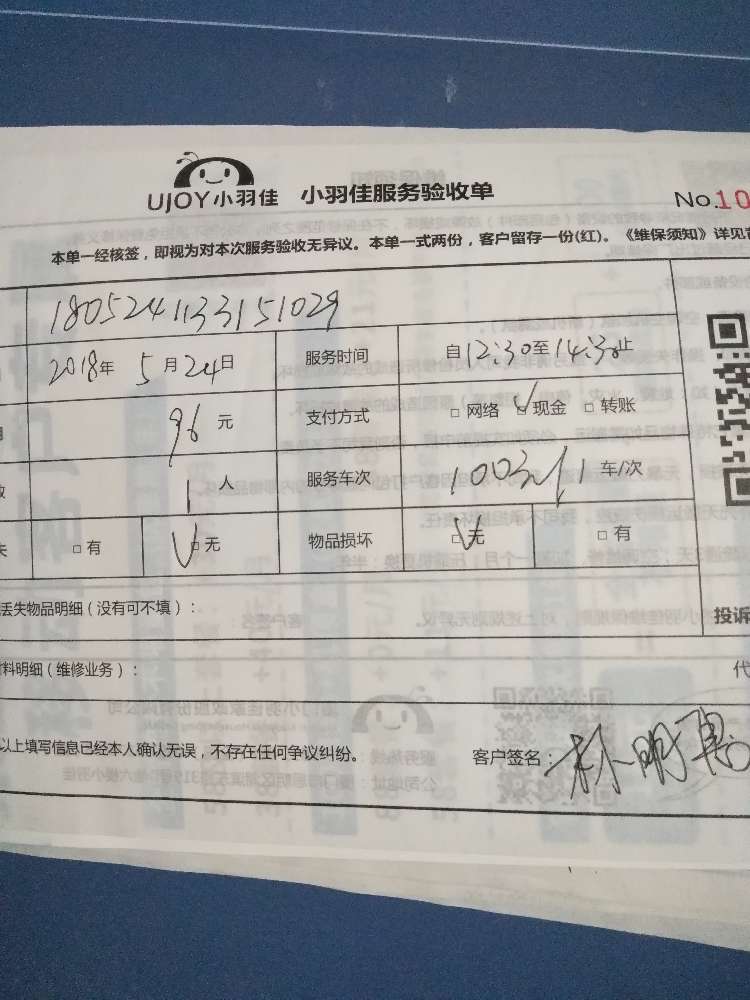 UJOY小羽佳 小羽佳服务验收单
No.10
本单一经核签，即视为对本次服务验收无异议。本单一式两份，客户留存一份(红)。《维保须知》详见
1805241133151029
2018年 5月24日 服务时间 自12:30至14:30止
96元 支付方式 □网络 ☑现金 □转账
1人 服务车次 1003 1车/次
□有 ☑无 物品损坏 ☑无 □有
丢失物品明细（没有可不填）：
投诉
料明细（维修业务）：
代
以上填写信息已经本人确认无误，不存在任何争议纠纷。 客户签名：林明